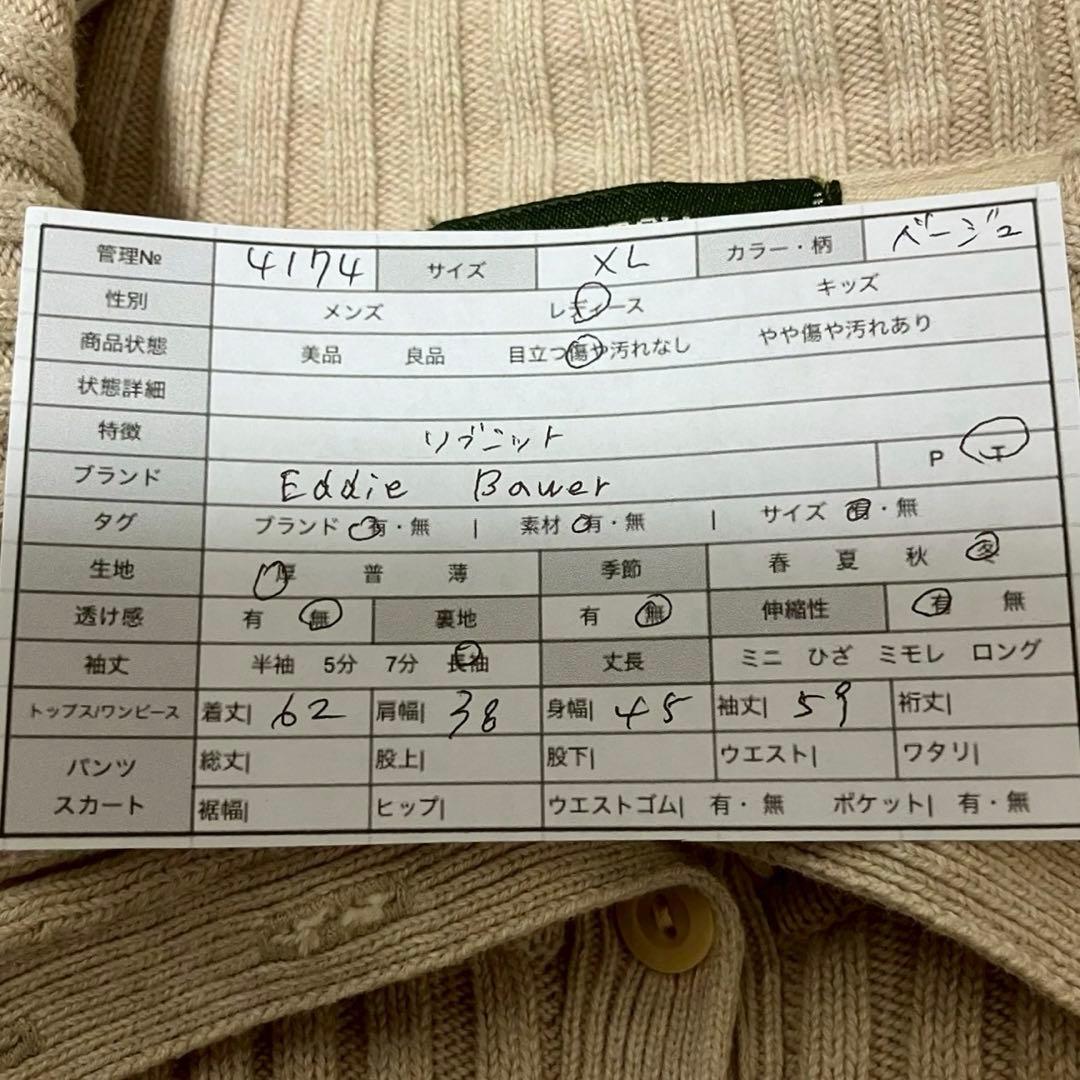 管理№ 4174 サイズ XL カラー・柄 ベージュ
性別 メンズ レディース キッズ
商品状態 美品 良品 目立つ傷や汚れなし やや傷や汚れあり
状態詳細
特徴 リブニット
ブランド Eddie Bauer P T
タグ ブランド 有・無 | 素材 有・無 | サイズ 有・無
生地 厚 普 薄 季節 春 夏 秋 冬
透け感 有 無 裏地 有 無 伸縮性 有 無
袖丈 半袖 5分 7分 長袖 丈長 ミニ ひざ ミモレ ロング
トップス/ワンピース 着丈| 62 肩幅| 38 身幅| 45 袖丈| 59 裄丈|
パンツ スカート 総丈| 股上| 股下| ウエスト| ワタリ|
裾幅| ヒップ| ウエストゴム| 有・無 ポケット| 有・無